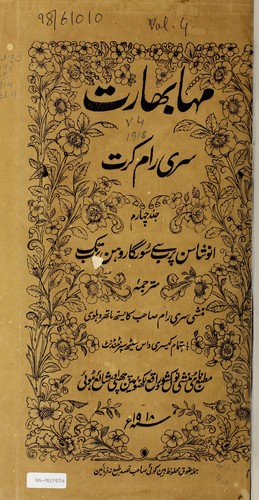 98/61010
Vol. 4
مہابھارت
V4
1918
سری رام کرت
جلد چہارم
انوشاسن پرب سے سورگاروہن تک
مترجمہ
منشی سری رام صاحب کایستھ ماتھر دہلوی
باہتمام کیسری داس سیٹھ سپرنٹنڈنٹ
مطبع نامی منشی نولکشور واقع لکھنؤ میں چھپی شائع ہوئی
۱۹۱۸ء